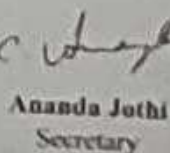 Ananda Jothi
Secretary